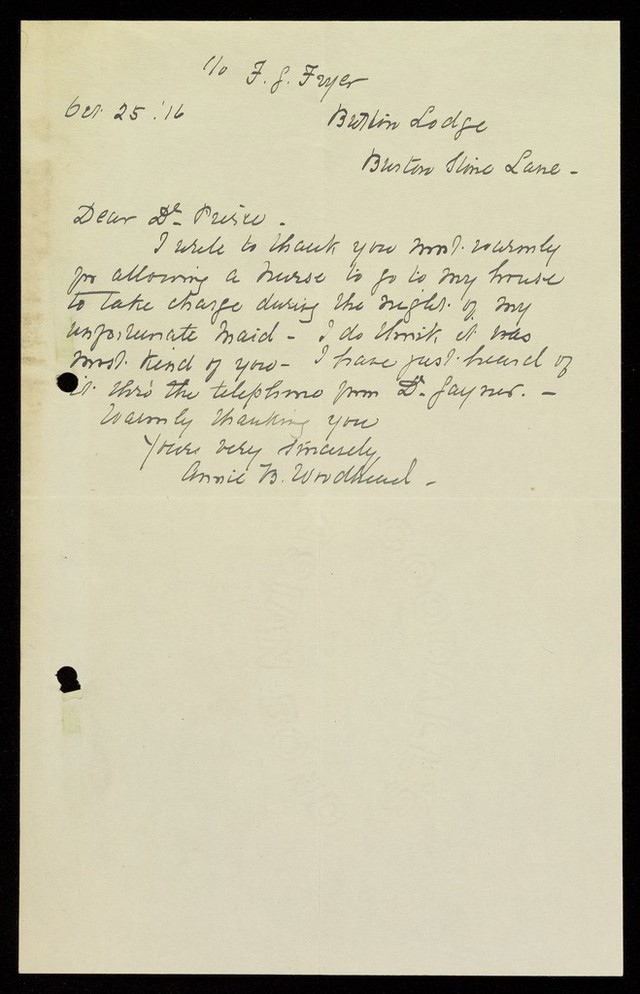 c/o F. J. Fryer
Oct 25. '16
Burton Lodge
Burton Stone Lane -
Dear Dr. Pierce -
I write to thank you most warmly
for allowing a nurse to go to my house
to take charge during the night of my
unfortunate maid - I do think it was
most kind of you - I have just heard of
it thro' the telephone from Dr. Gayner. -
Warmly thanking you
Yours very sincerely
Annie B. Woodhead -